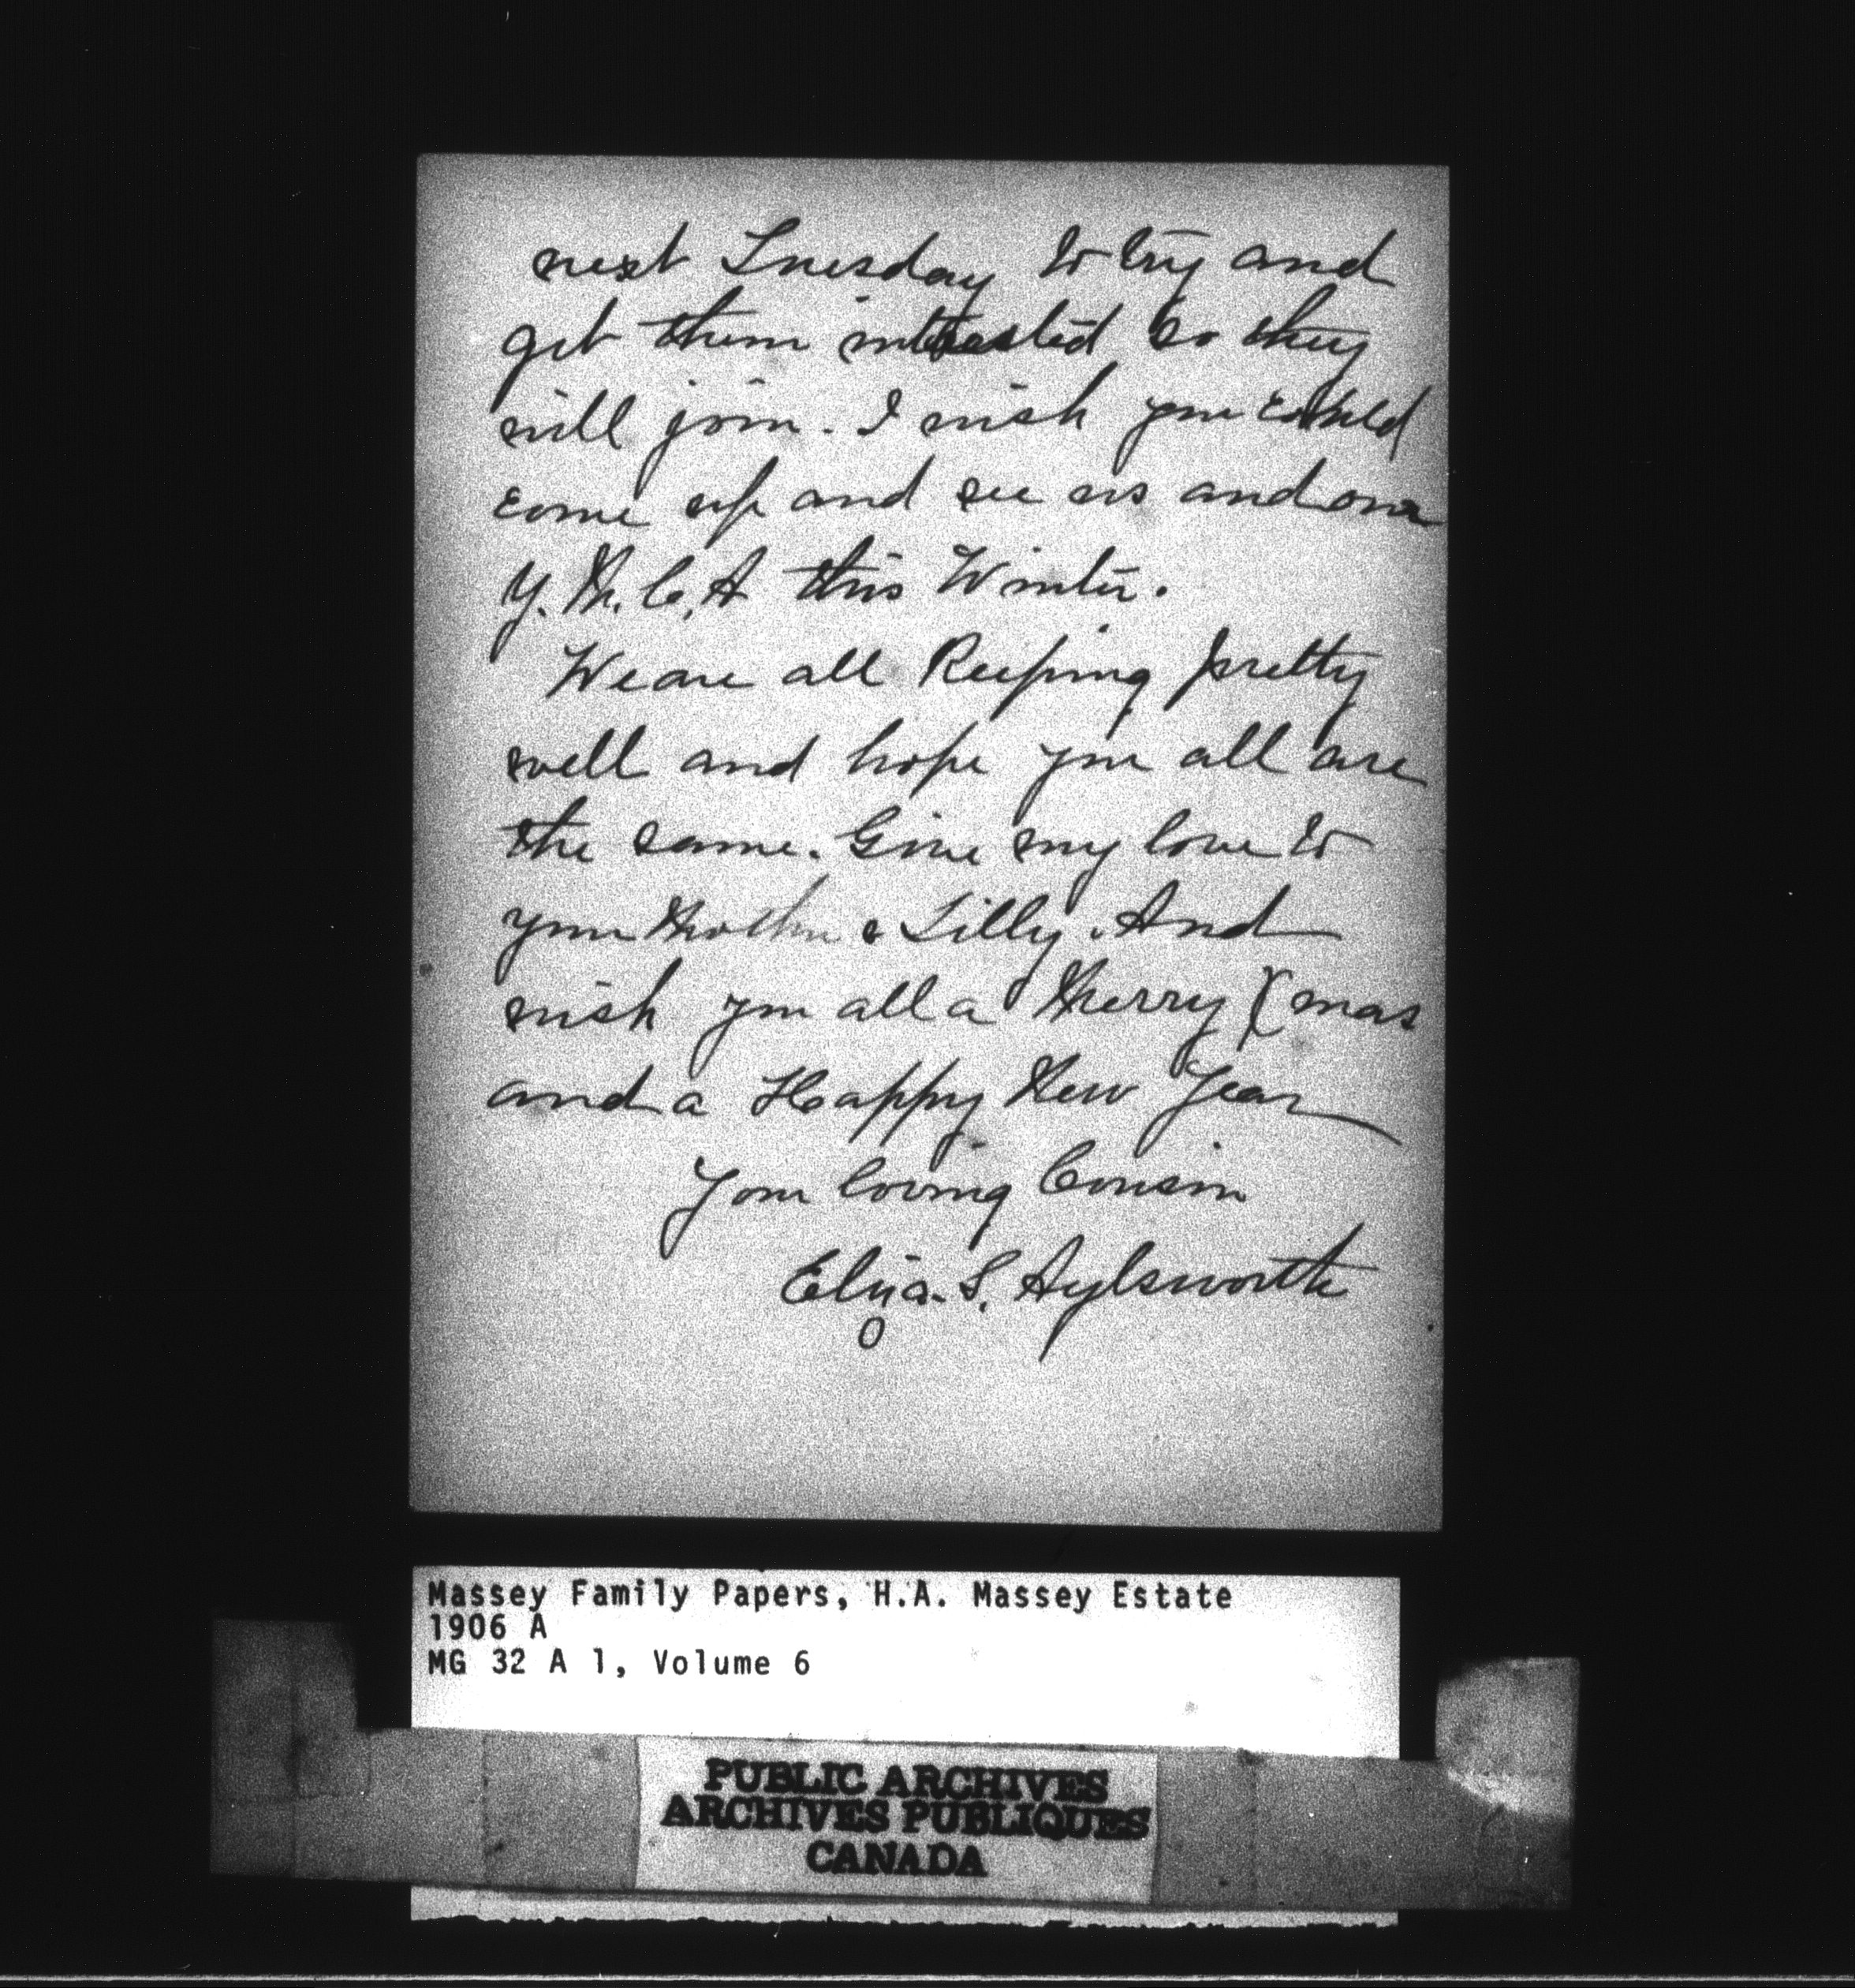 next Tuesday to try and
get them interested so they
will join. I wish you could
come up and see us and our
Y. M. C. A this Winter.
We are all Keeping pretty
well and hope you all are
the same. Give my love to
your Mother & Lilly. And
wish you all a Merry Xmas
and a Happy New Year
Your loving Cousin
Eliza. S. Aylsworth
Massey Family Papers, H.A. Massey Estate
1906 A
MG 32 A 1, Volume 6
PUBLIC ARCHIVES
ARCHIVES PUBLIQUES
CANADA